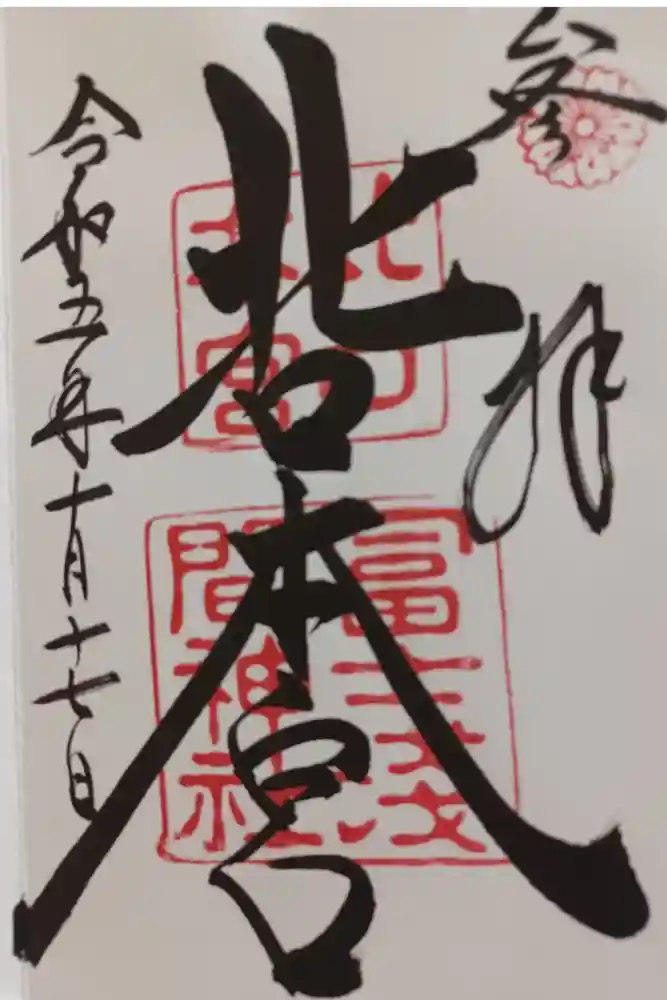 参拝
北口本宮
令和五年十月十七日
北口
本宮
冨士淺
間神社